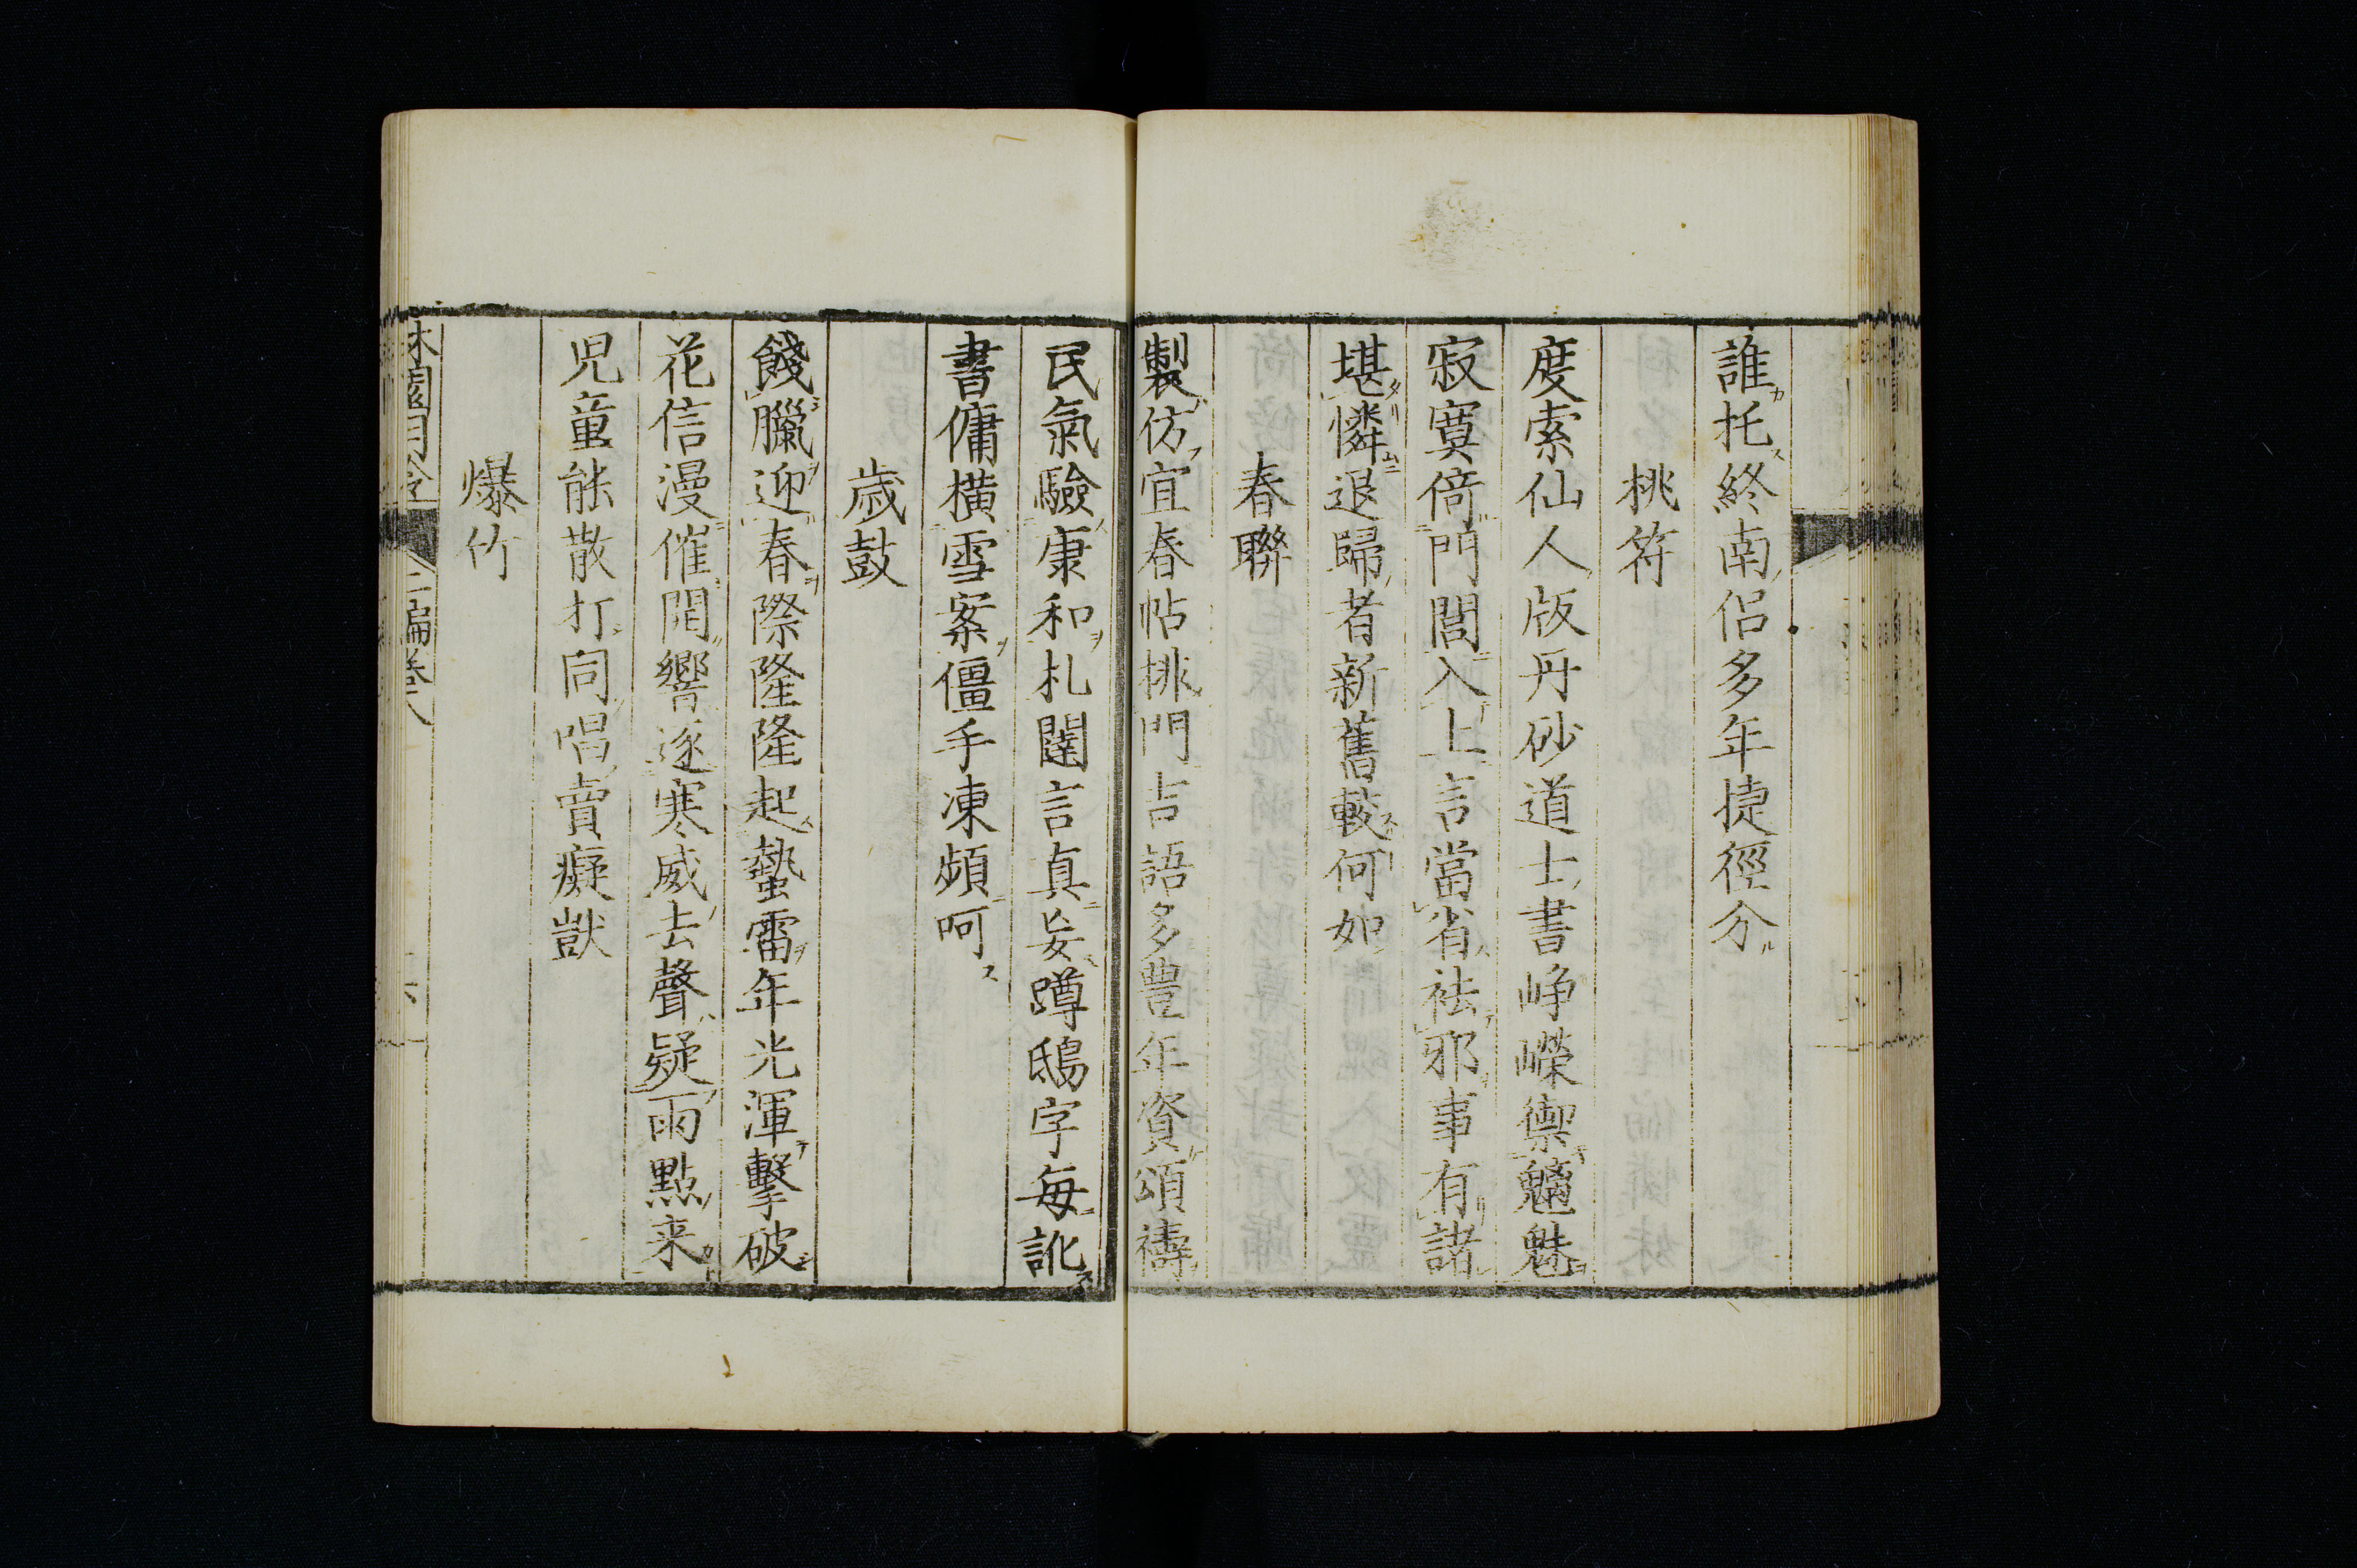 誰托終南侶多年捷徑分
桃符
度索仙人版丹砂道士書崢嶸禦魑魅
寂寞倚門閭入上言當省祛邪事有諸
堪憐退歸者新舊較何如
春聯
製仿宜春帖桃門吉語多豊年資頌禱
民氣驗康和札闥言真妄蹲鴟字每訛
書傭横雪案僵手凍頻呵
歳鼓
餞臘迎春際隆隆起蟄雷年光渾擊破
花信漫催開響逐寒威去聲疑雨點来
児童能散打同唱賣癡獃
爆竹
林園月令 二編卷八